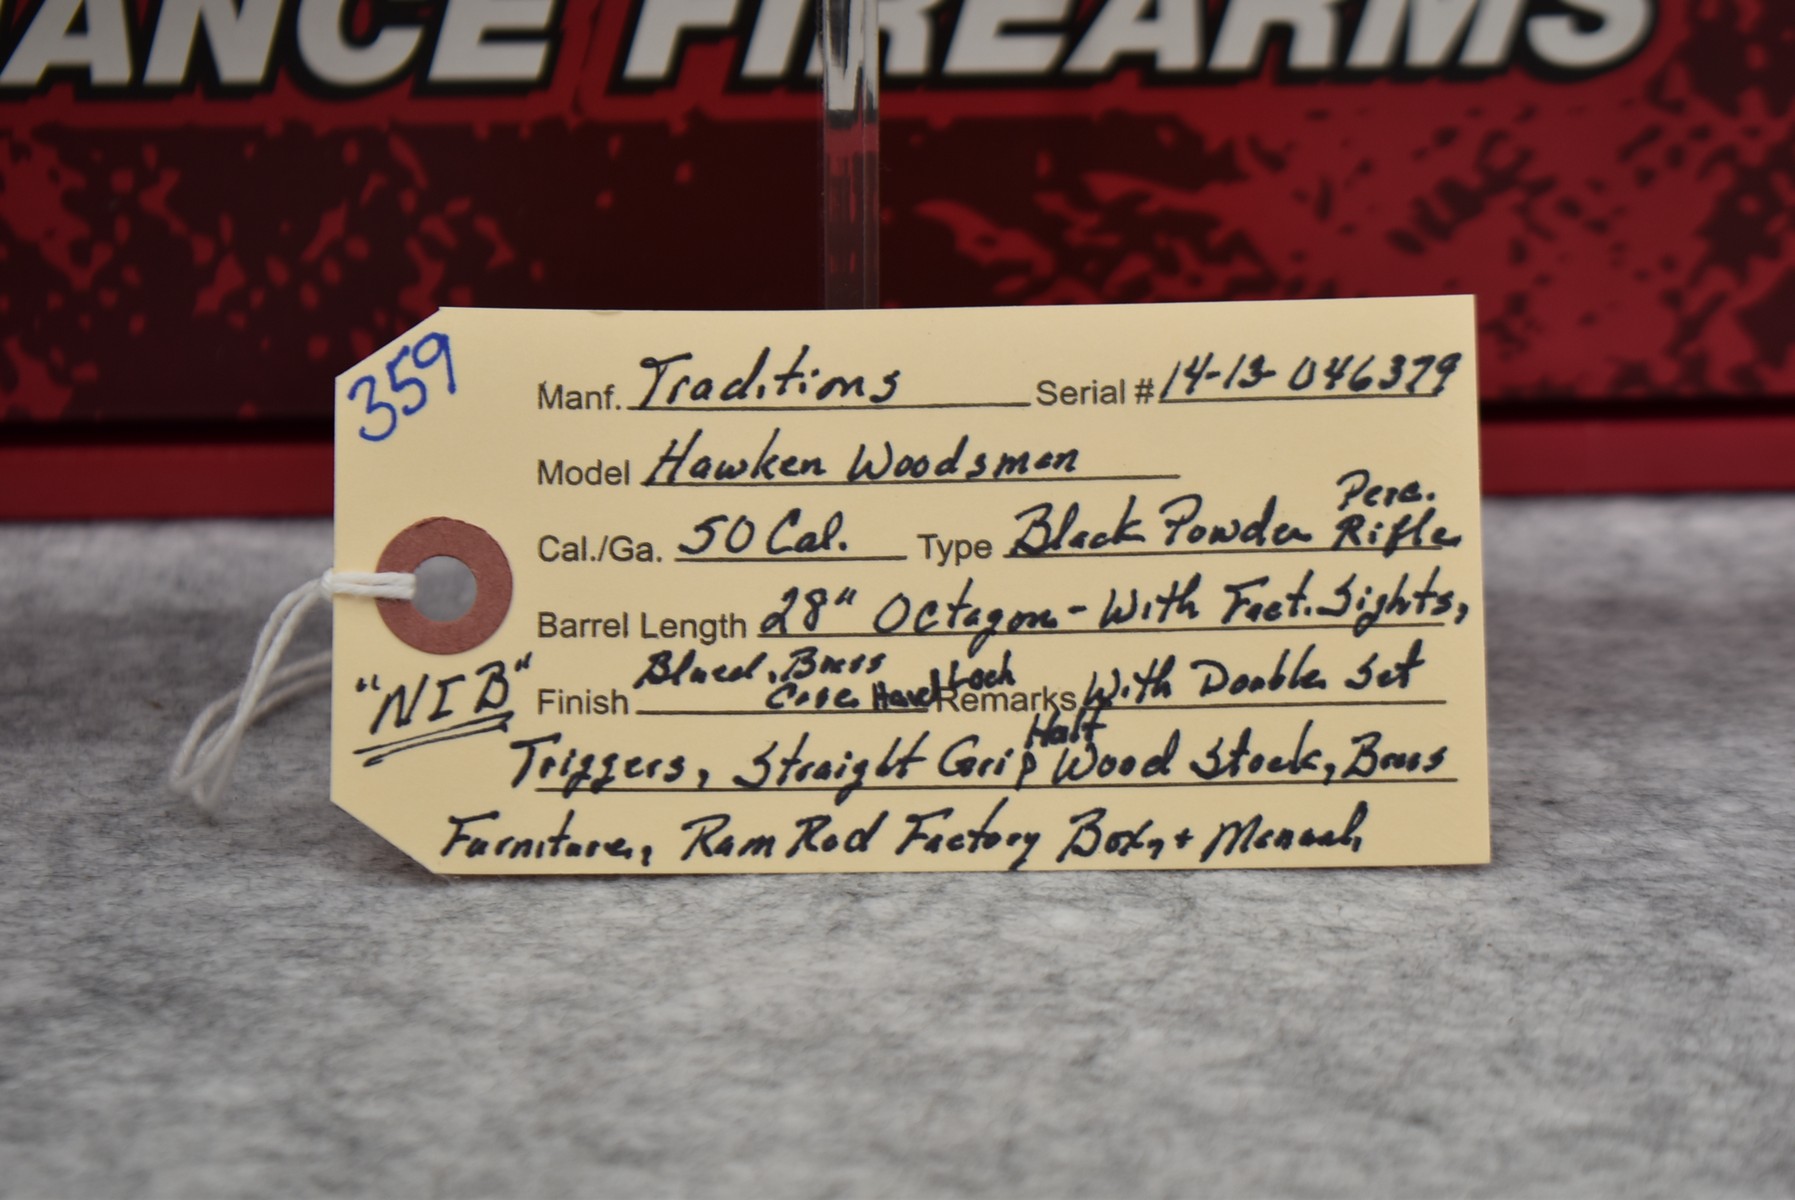 ANCE FIREARMS
359
Manf. Traditions Serial # 14-13-046379
Model Hawken Woodsman
Cal./Ga. 50 Cal. Type Black Powder Perc. Rifle
Barrel Length 28" Octagon - With Fact. Sights,
"NIB"
Finish Blued, Brass Case Hard Lock Remarks With Double Set
Triggers, Straight Grip Half Wood Stock, Brass
Furniture, Ram Rod Factory Box, + Manual,